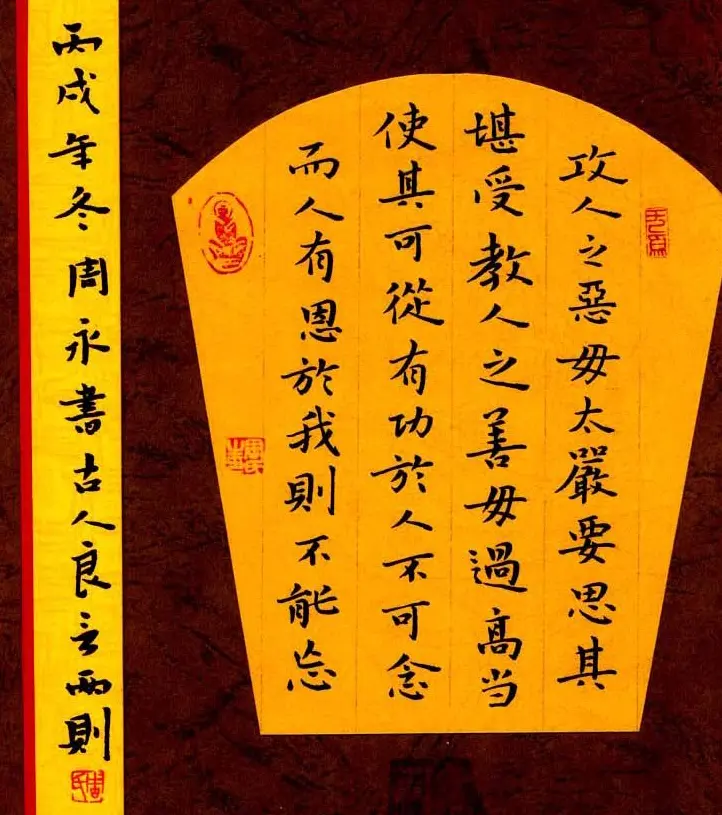 攻人之惡毋太嚴要思其
堪受教人之善毋過高当
使其可從有功於人不可念
而人有恩於我則不能忘
丙戌年冬周永書古人良言兩則